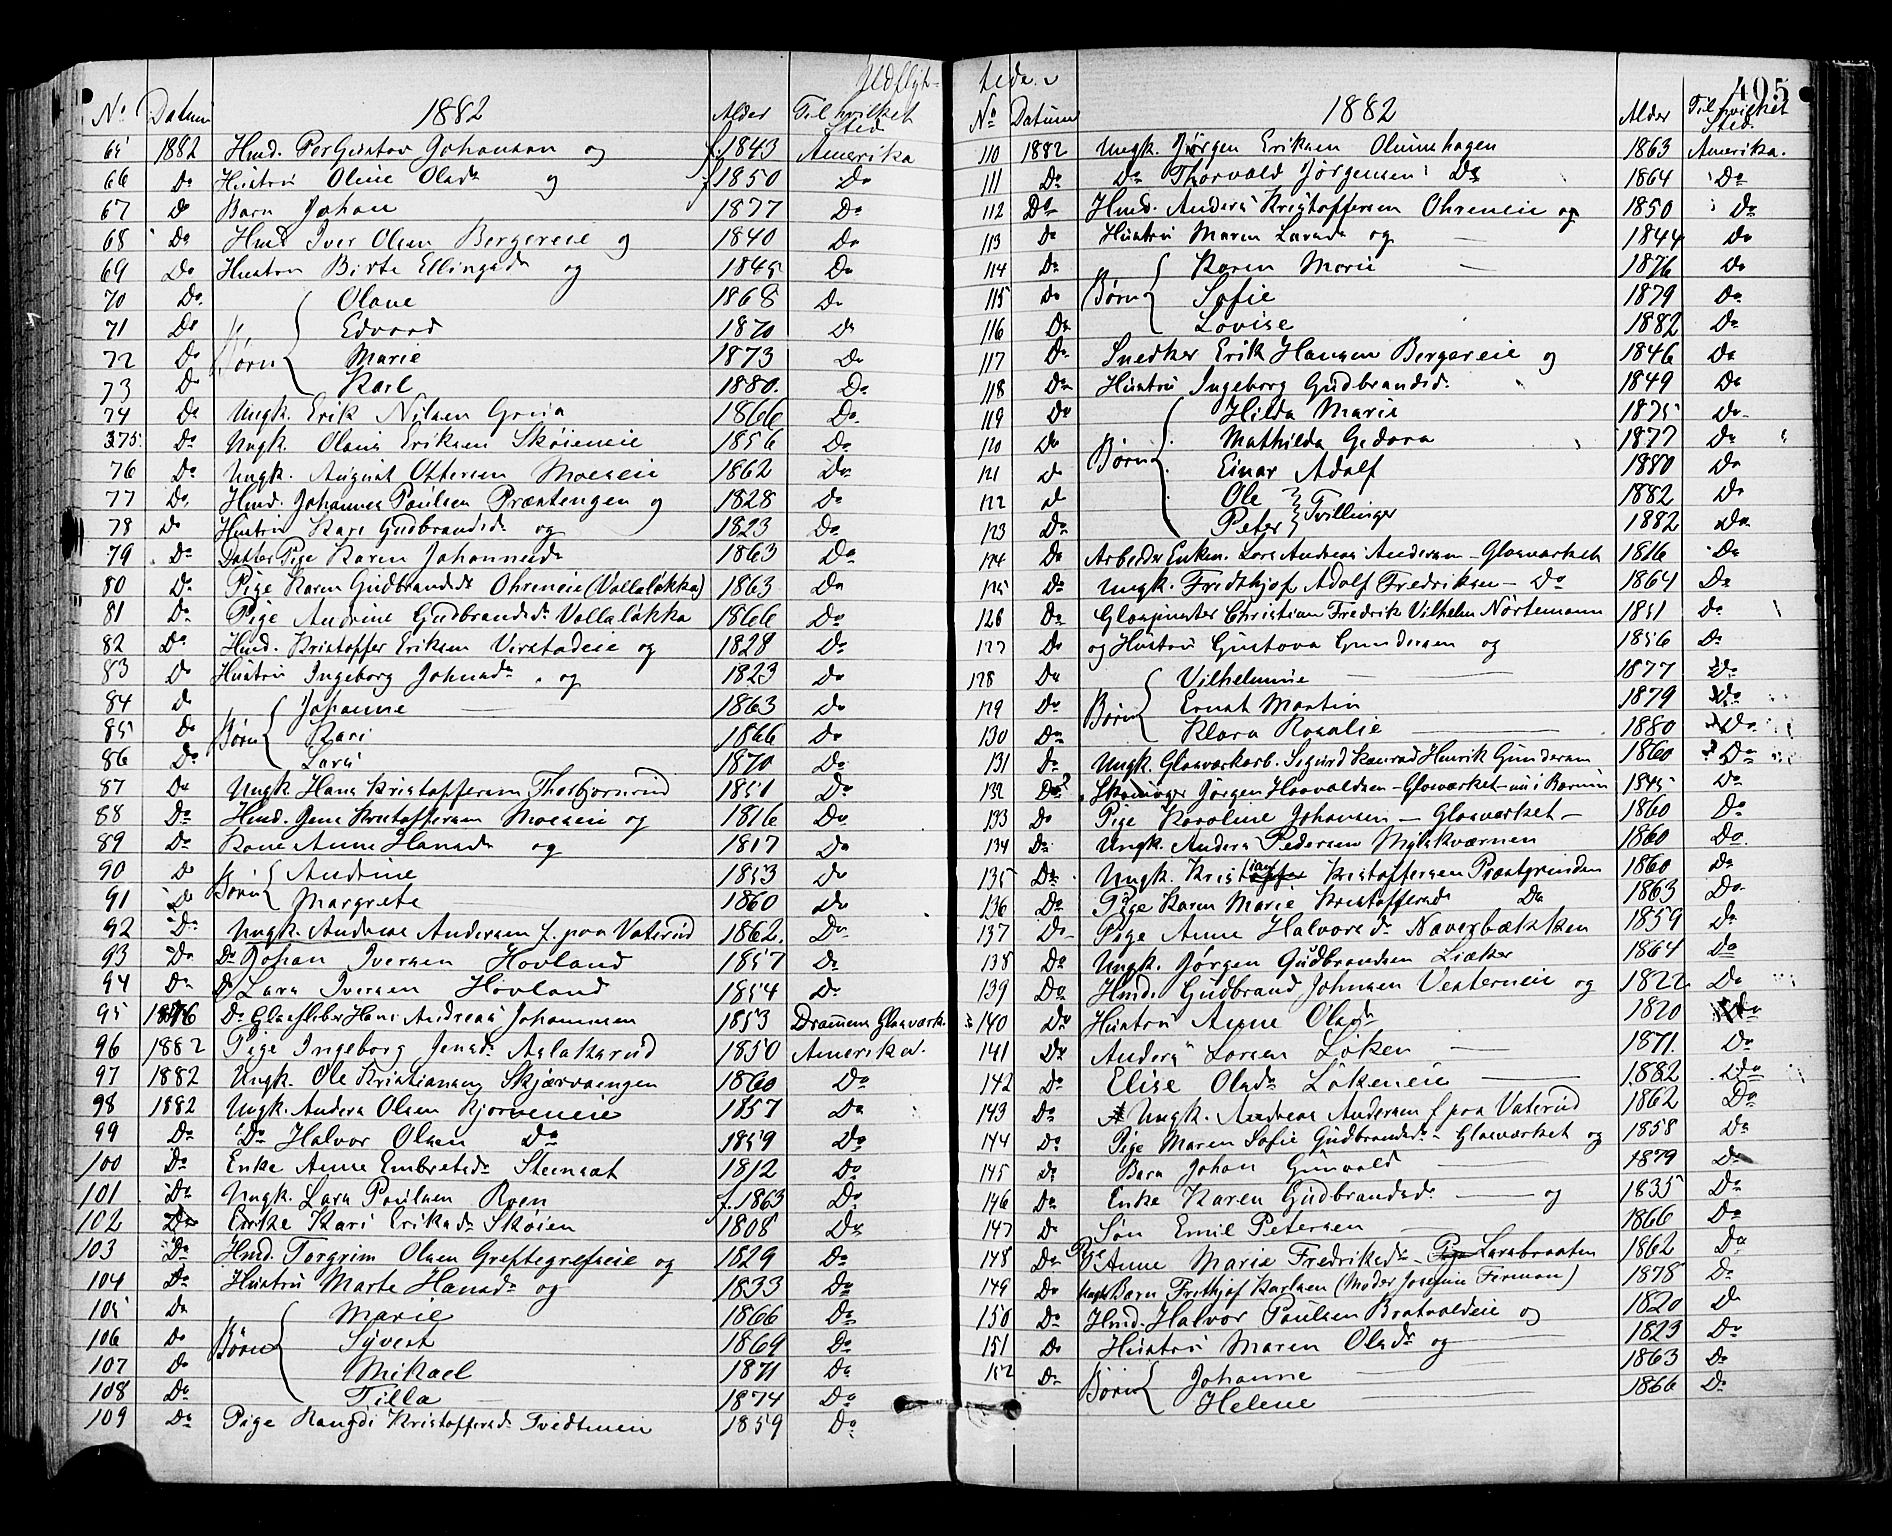 Udflyt-
No Datum 1882 Alder Til hvilket Sted
65 1882 Hmd. Per Gustav Johansen og f. 1843 Amerika
66 Do Hustru Oline Olsdr og f 1850 Do
67 Do Barn Johan 1877 Do
68 Do Hmd Iver Olsen Bergereie og 1840 Do
69 Do Hustru Birte Ellingsdr og 1845 Do
70 Do Olave 1868 Do
71 Do Edvard 1870 Do
72 Do Børn Marie 1873 Do
73 Do Karl 1880. Do
74 Do Ungk. Erik Nilsen 1866 Do
375. Do Ungk. Olaus Eriksen Skøieneie 1856 Do
76 Do Ungk. August Ottersen Moeseie 1862 Do
77 Do Hmd. Johannes Paulsen Præstengen og 1828 Do
78 Do Hustru Kari Gudbrandsdr og 1823 Do
79 Do Datter Pige Karen Johannesdr 1863 Do
80 Do Pige Karen Gudbrandsdr Ohreneie (Vollaløkka) 1863 Do
81 Do Pige Andrine Gudbrandsdr Vollaløkka 1866 Do
82 Do Hmd. Kristoffer Eriksen Virstadeie og 1828 Do
83 Do Hustru Ingeborg Johnsdr og 1823 Do
84 Do Johanne 1863 Do
85 Do Børn Kari 1866 Do
86 Do Lars 1870 Do
87 Do Ungk Hans Kristoffersen Thorbjørnrud 1851 Do
88 Do Hmd. Jens Kristoffersen Moeseie og 1816 Do
89 Do Kone Anne Hansdr og 1817 Do
90 Do Andrine 1853 Do
91 Do Børn Margrete 1860 Do
92 Do Ungk. Andreas Andersen f. paa Vaterud 1862. Do
93 Do Do Johan Iversen Hovland 1857 Do
94 Do Do Lars Iversen Hovland 1854 Do
95 1876 Do Glassliber Hans Andreas Johannesen 1853 Drammens Glasværk.
96 1882 Pige Ingeborg Jensdr Aslaksrud 1850 Amerika.
97 1882 Ungk. Ole Kristiansen Skjærvaengen 1860 Do
98 1882 Ungk. Anders Olsen Kjorveneie 1857 Do
99 Do Do Halvor Olsen Do 1859 Do
100 Do Enke Anne Embretsdr Steensæt 1812 Do
101 Do Ungk. Lars Paulsen Roen f. 1863 Do
102 Do Enke Kari Eriksdr Skøien 1808 Do
103 Do Hmd. Torgrim Olsen Greftegrefseie og 1829 Do
104 Do Hustru Marte Hansdr og 1833 Do
105 Do Marie 1866 Do
106 Do Børn Syvert 1869 Do
107 Do Mikael 1871 Do
108 Do Tilla 1874 Do
109 Do Pige Rangdi Kristoffersdr Tvedteneie 1859 Do
tede. 405
No Datum 1882 Alder Til hvilket Sted.
110 1882 Ungk. Jørgen Eriksen Olimehagen 1863 Amerika.
111 Do Do Thorvald Jørgensen Do 1864 Do
112 Do Hmd. Anders Kristoffersen Ohreneie og 1850 Do
113 Do Hustru Maren Larsdr og 1844 Do
114 Do Karen Marie 1876 Do
115 Do Børn Sofie 1879 Do
116 Do Lovise 1882 Do
117 Do Snedker Erik Hansen Bergereie og 1846 Do
118 Do Hustru Ingeborg Gudbrandsd. 1849 Do
119 Do Hilda Marie 1875 Do
120 Do Mathilda Gedora 1877 Do
121 Do Børn Einar Adolf 1880 Do
122 Do Ole 1882 Do
Tvillinger
123 Do Peter 1882 Do
124 Do Arbeider Enkem. Lars Andreas Andersen - Glasværket 1816 Do
125 Do Ungk. Fridthjof Adolf Fredriksen - Do 1864 Do
126 Do Glasmester Christian Fredrik Vilhelm Nörtemann 1851 Do
127 Do og Hustru Gustava Gundersen og 1856 Do
128 Do Vilhelmine 1877 Do
129 Do Børn Ernst Martin 1879 Do
130 Do Klara Rosalie 1880 Do
131 Do Ungk. Glasværksarb. Sigurd Konrad Henrik Gundersen 1860 Do
132 Do? Jørgen Haavaldsen - Glasværket - nu i Barnum 1845 Do
133 Do Pige Karoline Johansen - Glasværket - 1860 Do
134 Do Ungk. Anders Pedersen Mølskværnen 1860 Do
135 Do Ungk. Kristian Kristoffersen Præstgrinden 1860 Do
136 Do Pige Karen Marie Kristoffersdr Do 1863 Do
137 Do Pige Anne Halvorsdr Naverbækken 1859 Do
138 Do Ungk. Jørgen Gudbrandsen Liaker 1864 Do
139 Do Hmd. Gudbrand Johnsen Vesterneie og 1822 Do
140 Do Hustru Anne Olsdr 1820 Do
141 Do Anders Larsen Løken 1871. Do
142 Do Elise Olsdr Løkeneie 1882 Do
143 Do Ungk. Andreas Andersen f paa Vaterud 1862 Do
144 Do Pige Maren Sofie Gudbrandsdr - Glasværket og 1858 Do
145 Do Barn Johan Gunvald 1879 Do
146 Do Enke Karen Gudbrandsdr og 1835 Do
147 Do Søn Emil Petersen 1866 Do
148 Do Pige Anne Marie Fredriksdr - Pige Larsbraaten 1862 Do
149 Do Ungk Barn Frithjof Karlsen (Moder Josefine Forman) 1878 Do
150 Do Hmd. Halvor Paulsen Bratvoldeie og 1820 Do
151 Do Hustru Maren Olsdr og 1823 Do
152 Do Johanne 1863 Do
Børn Helene 1866 Do